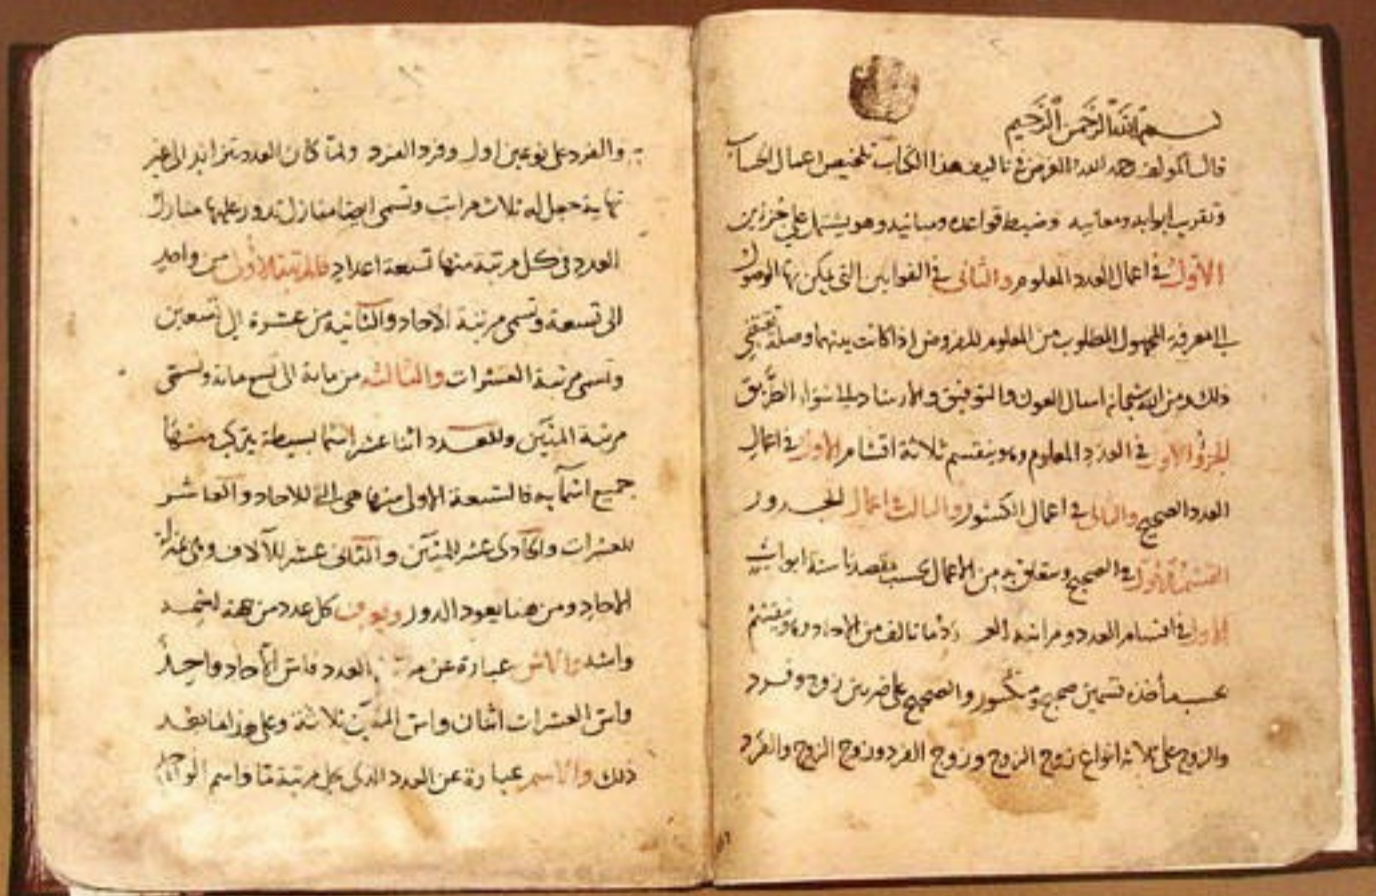 بسم الله الرحمن الرحيم
قال المولف رحمه الله الغرض في تاليف هذا الكتاب تلخيص اعمال الحساب
وتقريب ابوابه ومعانيه وضبط قواعده ومبانيه وهو يشتمل على جزءين
الاول في اعمال العدد المعلوم والثاني في القوانين التي يمكن بها الوصول
الى معرفة المجهول المطلوب من المعلوم المفروض اذا كانت بينهما وصلة تقتضي
ذلك ومن الله سبحانه اسال العون والتوفيق والارشاد الى سواء الطريق
الجزؤ الاول في العدد المعلوم وينقسم ثلاثة اقسام الاول في اعمال
العدد الصحيح والثاني في اعمال الكسور والثالث اعمال الجدور
القسم الاول في الصحيح ويتعلق به من الاعمال بحسب مقصدنا ستة ابواب
الاول في اقسام العدد ومراتبه العدد ما تالف من الاحاد وينقسم
بحسب ماخذه قسمين صحيح ومكسور والصحيح على ضربين زوج وفرد
والزوج على ثلاثة انواع زوج الزوج وزوج الفرد وزوج الزوج والفرد
والفرد على نوعين اول وفرد الفرد ولما كان العدد يتزايد الى غير
نهاية جعل له ثلاث مراتب وتسمى ايضا منازل تدور عليها منازل
العدد في كل مرتبة منها تسعة اعداد فالمرتبة الاولى من واحد
الى تسعة وتسمى مرتبة الاحاد والثانية من عشرة الى تسعين
وتسمى مرتبة العشرات والثالثه من ماية الى تسع ماية وتسمى
مرتبة المئين وللعدد اثنا عشر اسما بسيطة يتركب منها
جميع اسمآيه فالتسعة الاولى منها هي للاحاد والعاشر
للعشرات والحادى عشر للمئين والثانى عشر للالاف وهى
الاحاد ومن هنا يعود الدور ويعرف كل عدد من هذه
واسه والاس عبارة عن مرتبة العدد فاس الاحاد واحد
واس العشرات اثنان واس المئين ثلاثة وعلى هذا ما بعد
ذلك والاسم عبارة عن العدد الذى بكل مرتبة ما واسم